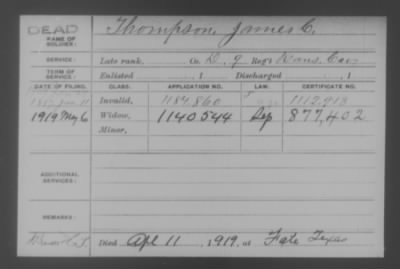 DEAD
NAME OF SOLDIER:
Thompson, James C.
SERVICE:
Late rank, Co. D, 9 Reg't Kans. Cav
TERM OF SERVICE:
Enlisted , 1 Discharged , 1
DATE OF FILING. CLASS. APPLICATION NO. LAW. CERTIFICATE NO.
Invalid, 1184,860 1112,913
1919 May 6 Widow, 1140544 Sep 877,402
Minor,
ADDITIONAL SERVICES:
REMARKS:
Died Apl 11, 1919, at Fate Texas